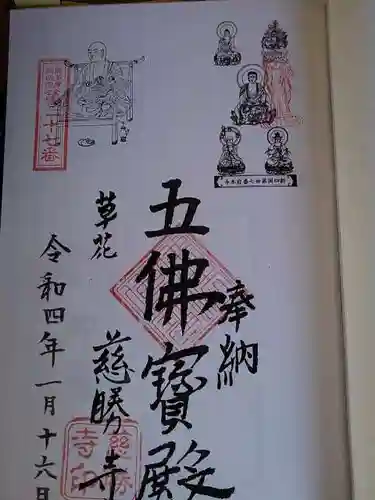 奉納
五佛寶殿
草花
慈勝寺
令和四年一月十六日
二十七番